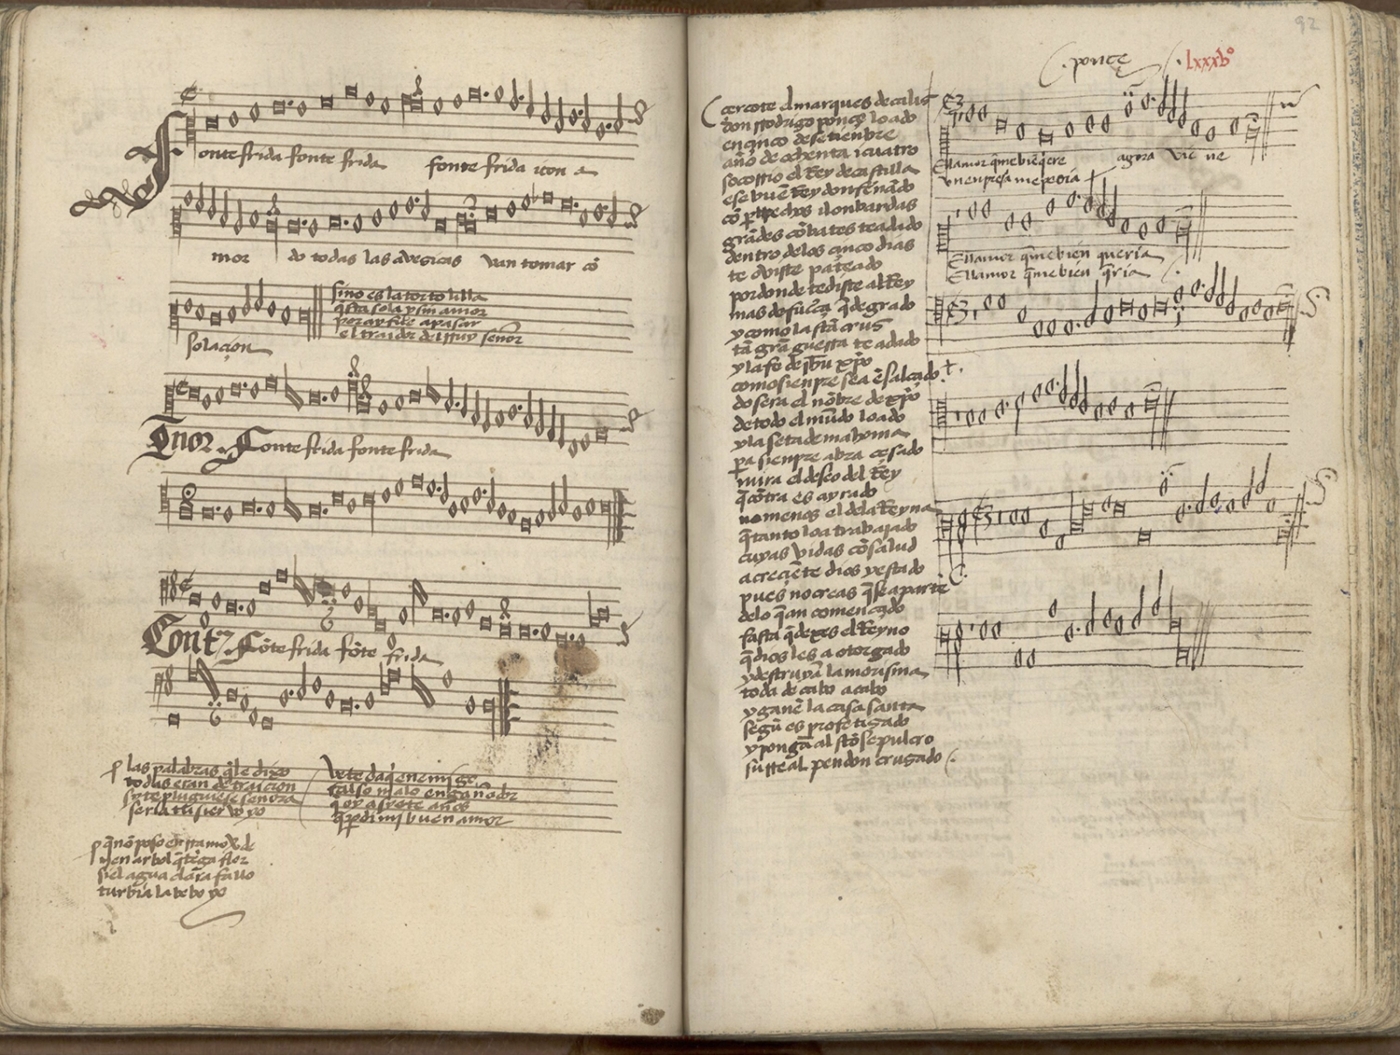 Fontefrida fonte frida fonte frida icon a
mor do todas las avezicas van tomar cō
solaçion
sino es la tortolilla
q̄sta sola y sin amor
por ay fue a pasar
el traidor del Ruy señor
Tenor Fontefrida fonte frida
Contra Fōte frida fōte frida
las palabras q̄ le dixo
todas eran de traicion
si te pluguiese señora
seria tu siervo yo
Vete daq̄ enemigo
falso malo engañador
q̄ oy a syete años
q̄ perdi mi buen amor
q̄ nō poso en rramo v̄de
nj en arbol q̄ tēga flor
si el agua clara fallo
turbia la bebo yo
92
ponce
lxxxbº
cercote el marques de caliz
don Rrodrigo ponçe loado
en çinco de setienbre
año de ochenta i cuatro
socorrio el Rey de castilla
ese buē Rey don fernādo
cō pertrechos i lonbardas
grādes cōbates te a dado
dentro de los çinco dias
te oviste pateado
por donde te diste al Rey
mas de fuerça q̄ de grado
y como la stā crus
tā grā guerra te a dado
y la fe de jhū xp̄o
como sienpre sea ēsalçado
do sera el nōbre de xp̄o
de todo el mūdo loado
y la seta de mahoma
pa sienpre abra çesado
mira el deseo del Rey
q̄ cōtra es ayrado
no menos el de la Reyna
q̄ tanto lo a trabajado
cuyas vidas cō salud
acreciēte dios y estado
pues no creas q̄ se aparte
de lo q̄ an començado
fasta q̄ dexes el Reyno
q̄ dios les a otorgado
y destruyā la morisma
toda de cabo a cabo
y ganē la casa santa
segū es profetizado
y pongā al stō sepulcro
su rreal pendon cruzado
Ell amor q̄ me bien q̄ere agora vie ne
vn enpresa me
Ell amor q̄ me bien queria
Ell amor q̄ me bien q̄ria